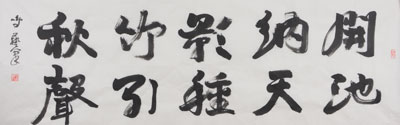 開池
納天
影種
竹引
秋聲